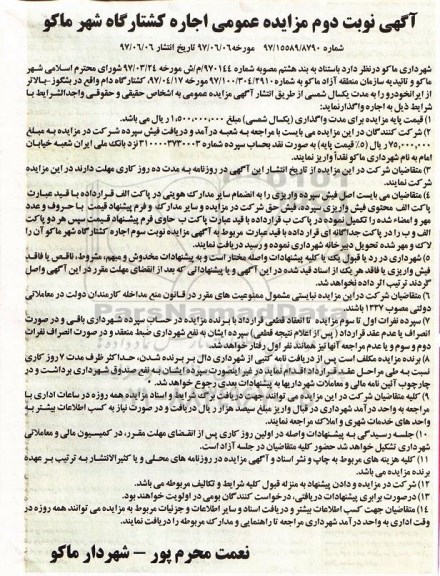 آگهی نوبت دوم مزایده عمومی اجاره کشتارگاه شهر ماکو
شماره ۹۷/۱۵۵۸۹/۸۷۹۰ مورخه ۹۷/۰۶/۰۶ تاریخ انتشار ۹۷/۰۶/۰۶
شهرداری ماکو درنظر دارد باستناد به بند هشتم مصوبه شماره ۹۷۰۱۴۴/م/ش مورخه ۹۷/۰۳/۲۴ شورای محترم اسلامی شهر
ماکو و تائیدیه سازمان منطقه آزاد ماکو به شماره ۹۷/۱۰۰/۳۰۴/۲۹۱۰ مورخه ۹۷/۰۴/۱۷، کشتارگاه دام واقع در بشگوز-بالاتر
از ایرانخودرو را به مدت یکسال شمسی از طریق انتشار آگهی مزایده عمومی به اشخاص حقیقی و حقوقی واجدالشرایط با
شرایط ذیل به اجاره واگذارنماید:
۱) قیمت پایه مزایده برای مدت واگذاری (یکسال شمسی) مبلغ ۱،۵۰۰،۰۰۰،۰۰۰ ریال می باشد.
۲) شرکت کنندگان در این مزایده می بایست با مراجعه به شعبه درآمد و دریافت فیش سپرده شرکت در مزایده به مبلغ
۷۵،۰۰۰،۰۰۰ ریال (۵٪ قیمت پایه) به صورت نقد بحساب سپرده شماره ۳۱۰۰۰۰۳۷۳۰۰۰۳ نزد بانک ملی ایران شعبه خیابان
امام به نام شهرداری ماکو نقداً واریز نمایند.
۳) متقاضیان شرکت در این مزایده از تاریخ انتشار این آگهی در روزنامه به مدت ده روز کاری مهلت دارند در این مزایده
شرکت نمایند.
۴) متقاضیان می بایست اصل فیش سپرده واریزی را به انضمام سایر مدارک هویتی در پاکت الف قرارداده با قید عبارت
پاکت الف محتوی فیش واریزی سپرده، فیش حق شرکت در مزایده و سایر مدارک و فرم پیشنهاد قیمت با حروف و عدد
مهر و امضاء شده را تکمیل نموده در پاکت ب قرارداده با قید عبارت پاکت ب حاوی فرم پیشنهاد قیمت سپس هر دو پاکت
الف و ب را در پاکت جداگانه ای قرار داده با قید عبارت مربوط به آگهی مزایده نوبت سوم اجاره کشتارگاه شهر ماکو آن را
لاک و مهر شده تحویل دبیرخانه شهرداری نموده و رسید دریافت نمایند.
۵) شهرداری در رد یا قبول یک یا کلیه پیشنهادات واصله مختار است و به پیشنهادات مخدوش و مبهم، مشروط، ناقص یا فاقد
فیش واریزی یا فاقد هر یک از اسناد قید شده در این آگهی و یا پیشنهاداتی که بعد از انقضای مهلت مقرر در این آگهی واصل
گردند ترتیب اثر داده نخواهد شد.
۶) متقاضیان شرکت در این مزایده نبایستی مشمول ممنوعیت های مقرر در قانون منع مداخله کارمندان دولت در معاملاتی
دولتی مصوب ۱۳۳۷ باشند.
۷) سپرده نفرات اول تا سوم مزایده تا انعقاد قطعی قرارداد با برنده مزایده در حساب سپرده شهرداری باقی و در صورت
انصراف یا عدم عقد قرارداد (پس از اعلام نتیجه قطعی) سپرده ایشان به نفع شهرداری ضبط منعقد و در صورت انصراف نفرات
دوم و سوم و یا عدم مراجعه آنها نیز همانند نفر اول رفتار خواهد شد.
۸) برنده مزایده مکلف است پس از دریافت نامه کتبی از شهرداری دال بر برنده شدن، حداکثر ظرف مدت ۷ روز کاری
نسبت به طی مراحل عقد قرارداد اقدام نماید در غیر اینصورت سپرده ایشان به نفع صندوق شهرداری برداشت و در
چارچوب آئین نامه مالی و معاملات شهرداریها به پیشنهادات بعدی رجوع خواهد شد.
۹) کلیه متقاضیان شرکت در این مزایده می توانند جهت دریافت برگ شرایط و اسناد مزایده همه روزه در ساعات اداری با
مراجعه به واحد درآمد شهرداری در قبال واریز مبلغ سیصد هزار ریال دریافت و در صورت نیاز به کسب اطلاعات بیشتر به
واحد های خدمات شهری و املاک مراجعه نمایند.
۱۰) جلسه رسیدگی به پیشنهادات واصله در اولین روز کاری پس از انقضای مهلت مقرر، در کمیسیون مالی و معاملاتی
شهرداری تشکیل خواهد شد حضور کلیه متقاضیان در جلسه آزاد است.
۱۱) کلیه هزینه های مربوط به چاپ و نشر اسناد و آگهی مزایده در روزنامه های محلی و یا کثیرالانتشار به ترتیب بر عهده
برنده مزایده می باشد.
۱۲) شرکت در مزایده و دادن پیشنهاد به منزله قبول کلیه شرایط و تکالیف مربوطه می باشد.
۱۳) درصورت برابری پیشنهادات دریافتی، درخواست کنندگان بومی در اولویت خواهند بود.
۱۴) متقاضیان جهت کسب اطلاعات بیشتر و دریافت اسناد و سایر اطلاعات و جزئیات مربوط به مزایده می توانند همه روزه در
وقت اداری به واحد درآمد شهرداری مراجعه تا راهنمایی و مدارک مربوطه را دریافت نمایند.
نعمت محرم پور - شهردار ماکو